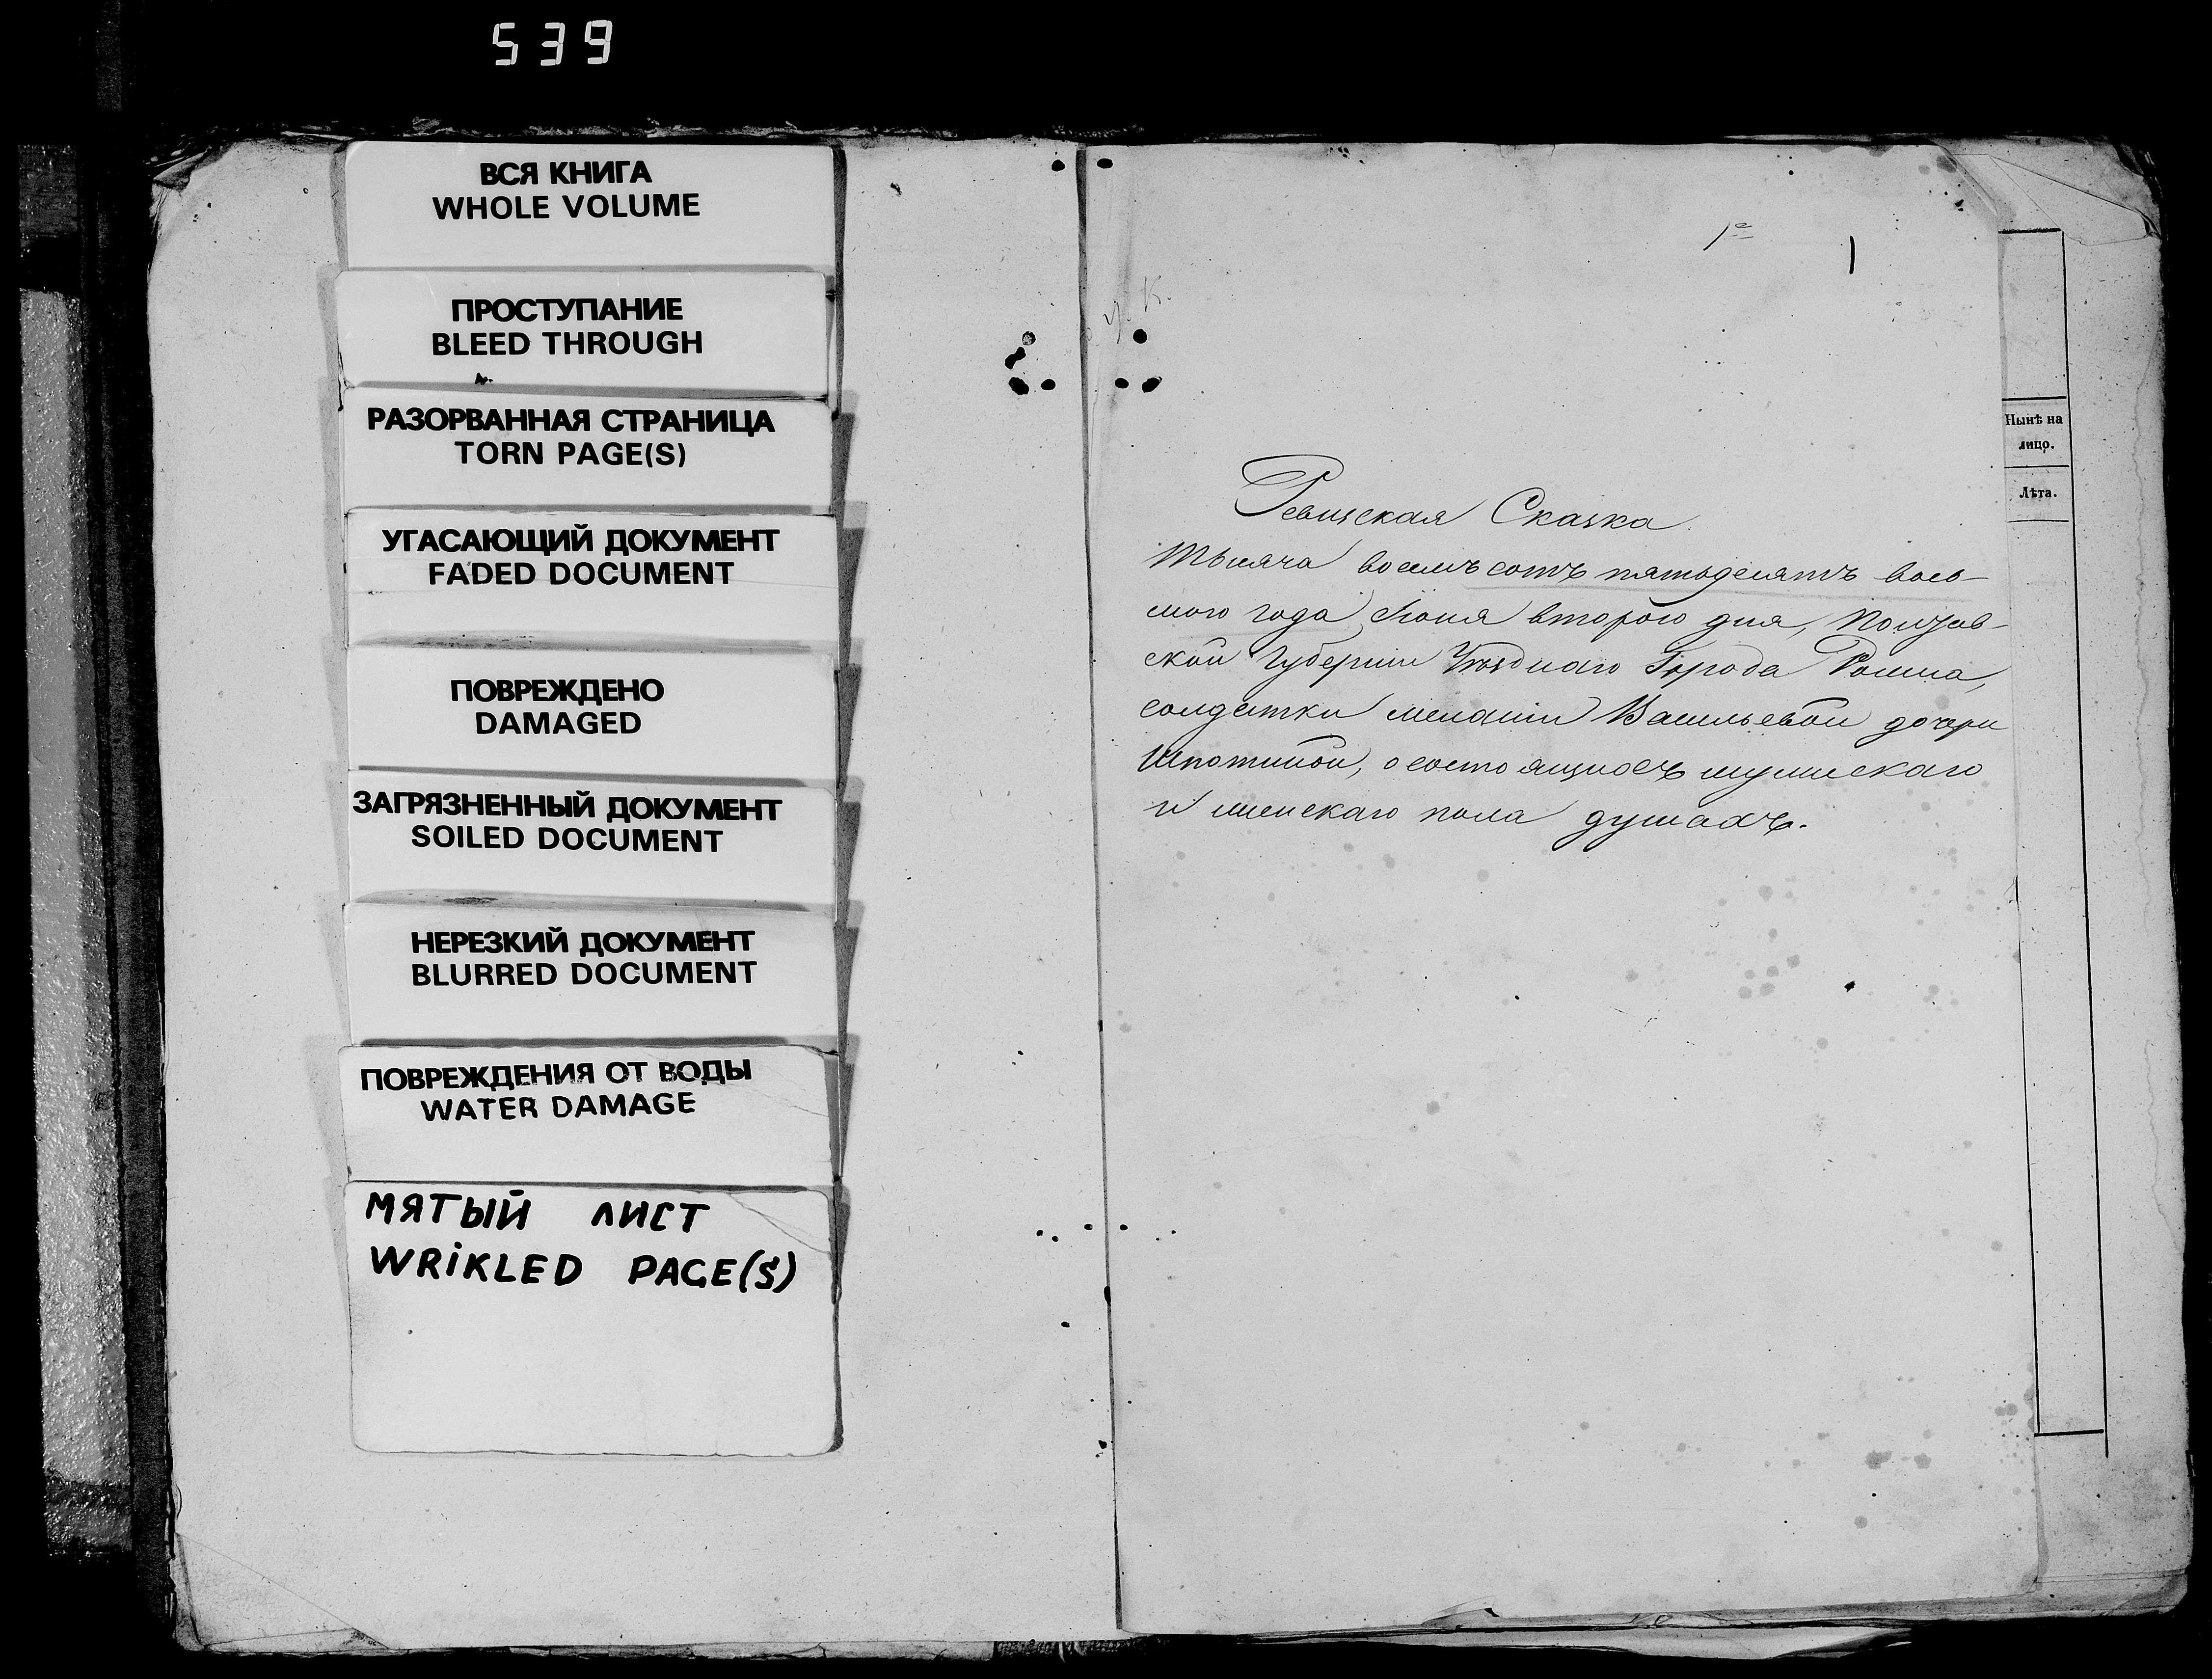 539
ВСЯ КНИГА
WHOLE VOLUME
ПРОСТУПАНИЕ
BLEED THROUGH
РАЗОРВАННАЯ СТРАНИЦА
TORN PAGE(S)
УГАСАЮЩИЙ ДОКУМЕНТ
FADED DOCUMENT
ПОВРЕЖДЕНО
DAMAGED
ЗАГРЯЗНЕННЫЙ ДОКУМЕНТ
SOILED DOCUMENT
НЕРЕЗКИЙ ДОКУМЕНТ
BLURRED DOCUMENT
ПОВРЕЖДЕНИЯ ОТ ВОДЫ
WATER DAMAGE
МЯТЫЙ ЛИСТ
WRIKLED PAGE(S)
1
Ревизская Сказка.
Тысяча восемъсотъ пятьдесятъ вось-
мого года Іюня второго дня, Полтав-
ской Губерніи Уѣзднаго Города Ромна,
солдатки Меланіи Васильевой дочери
Шпотиной, о состоящихъ мужескаго
и женскаго пола душахъ.
Нынѣ на
лицо.
Лѣта.